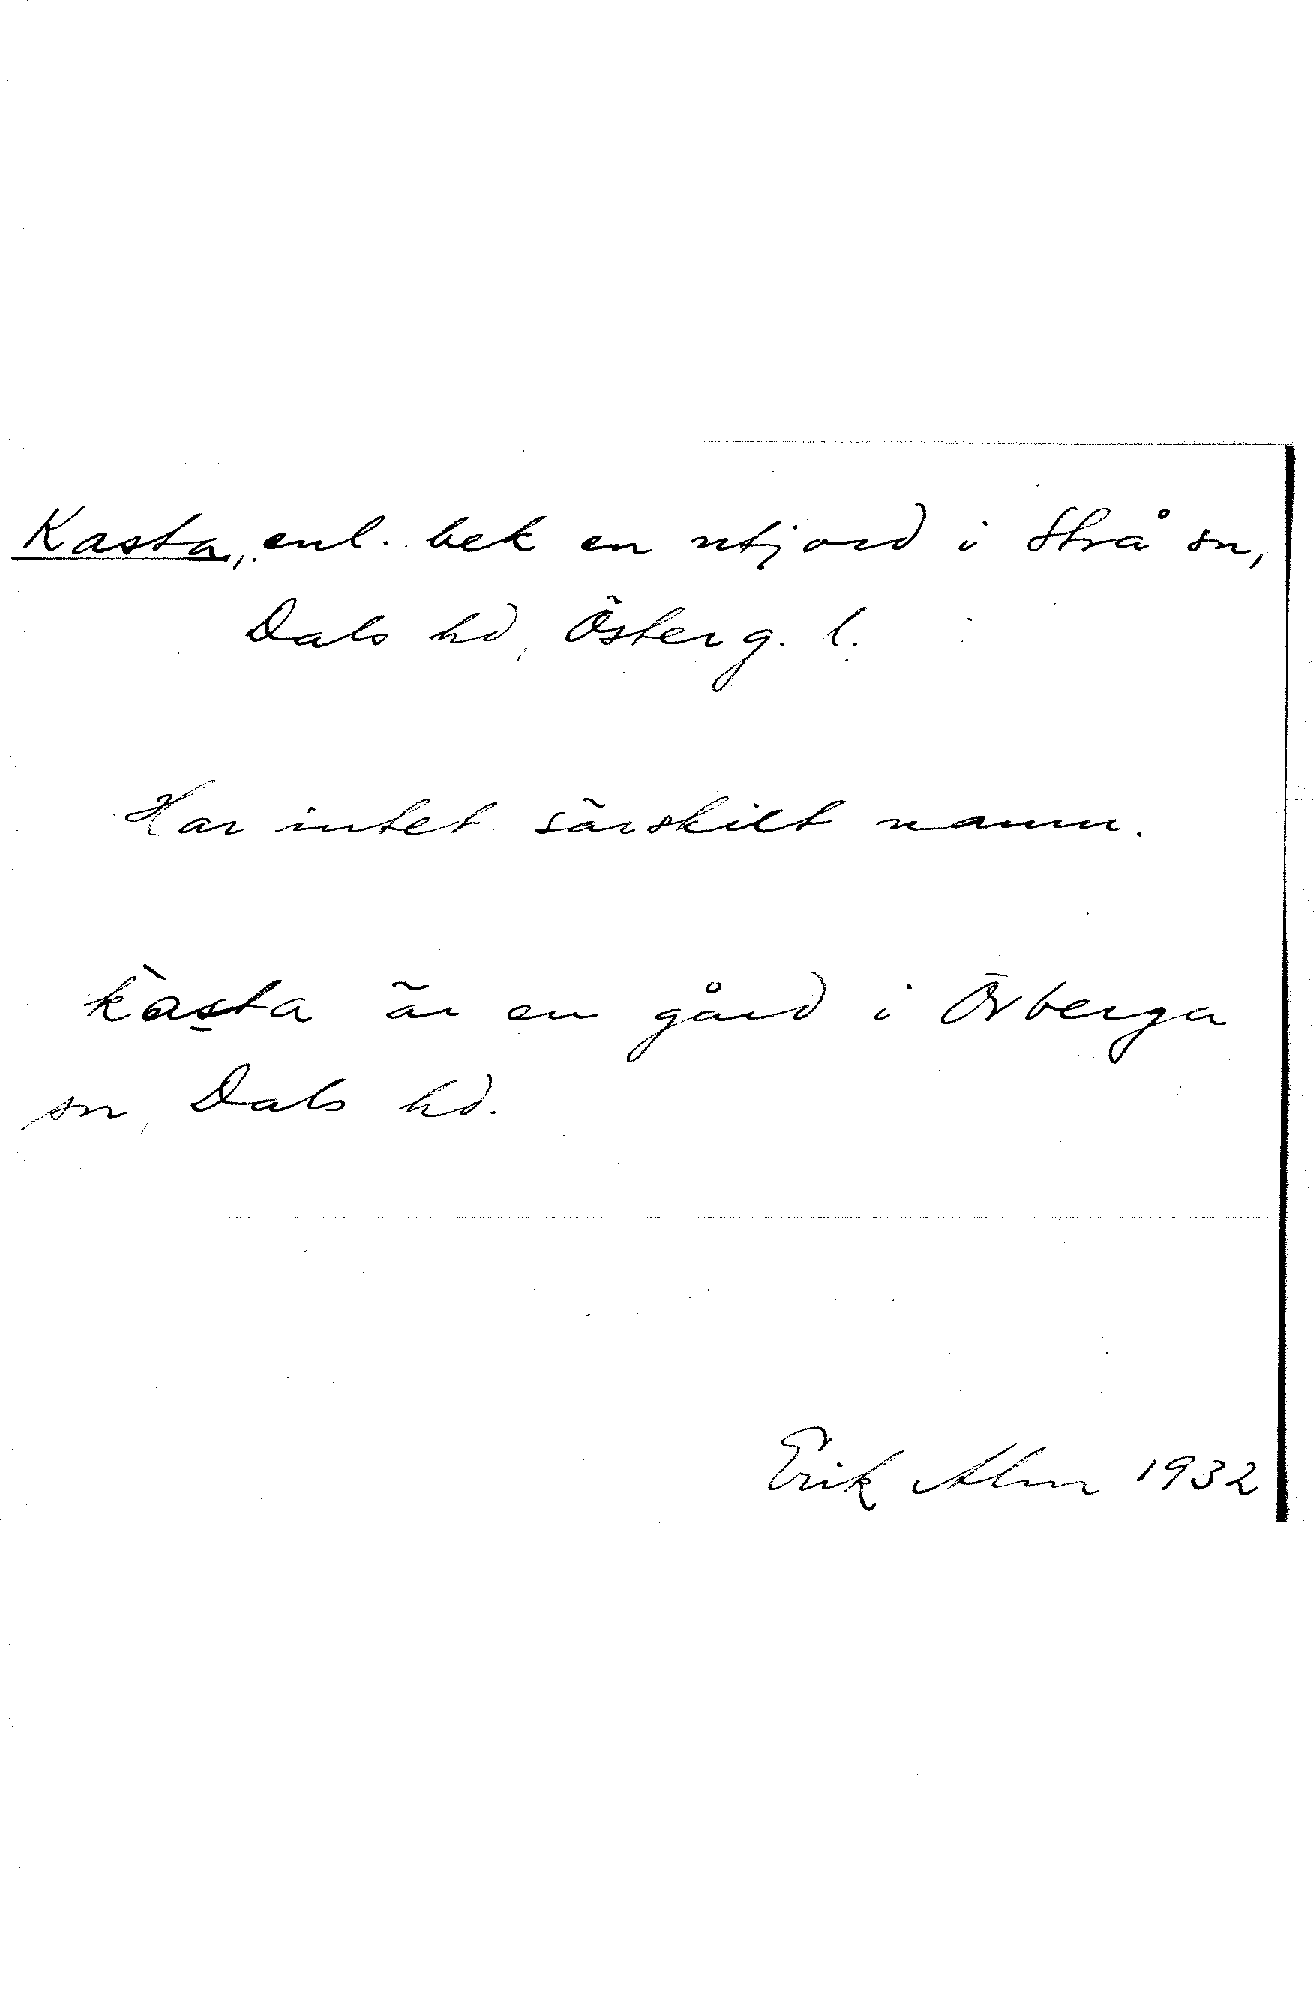 Kasta, enl. bek en utjord i Strå sn,
Dals hd, Österg. l.
Har intet särskilt namn.
kàsta är en gård i Örberga
sn, Dals hd.
Erik Alm 1932